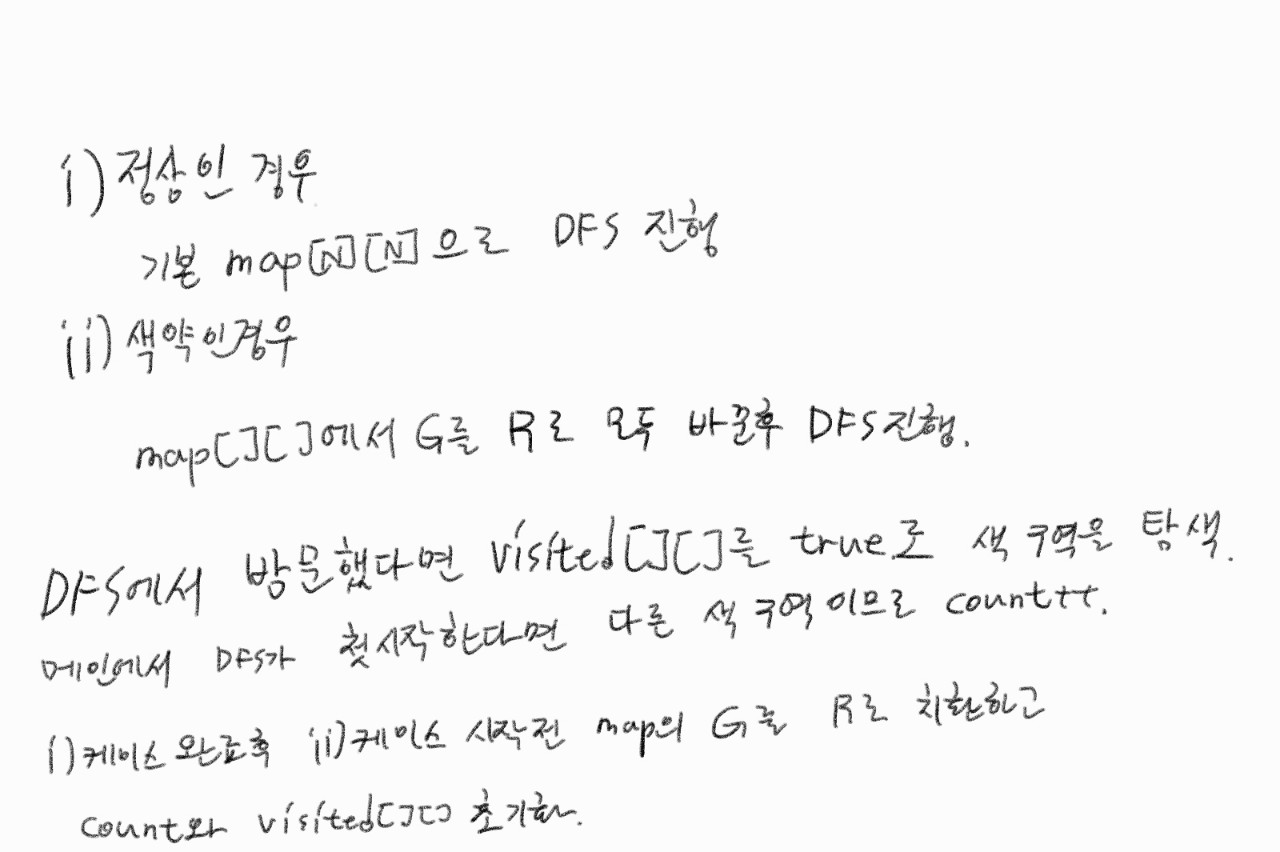 i) 정상인 경우
기본 map[N][N]으로 DFS 진행
ii) 색약인경우
map[][]에서 G를 R로 모두 바꾼후 DFS진행.
DFS에서 방문했다면 visited[][]를 true로 색 구역을 탐색.
메인에서 DFS가 첫시작한다면 다른 색 구역이므로 count++.
i)케이스 완료후 ii)케이스 시작전 map의 G를 R로 치환하고
count와 visited[][] 초기화.